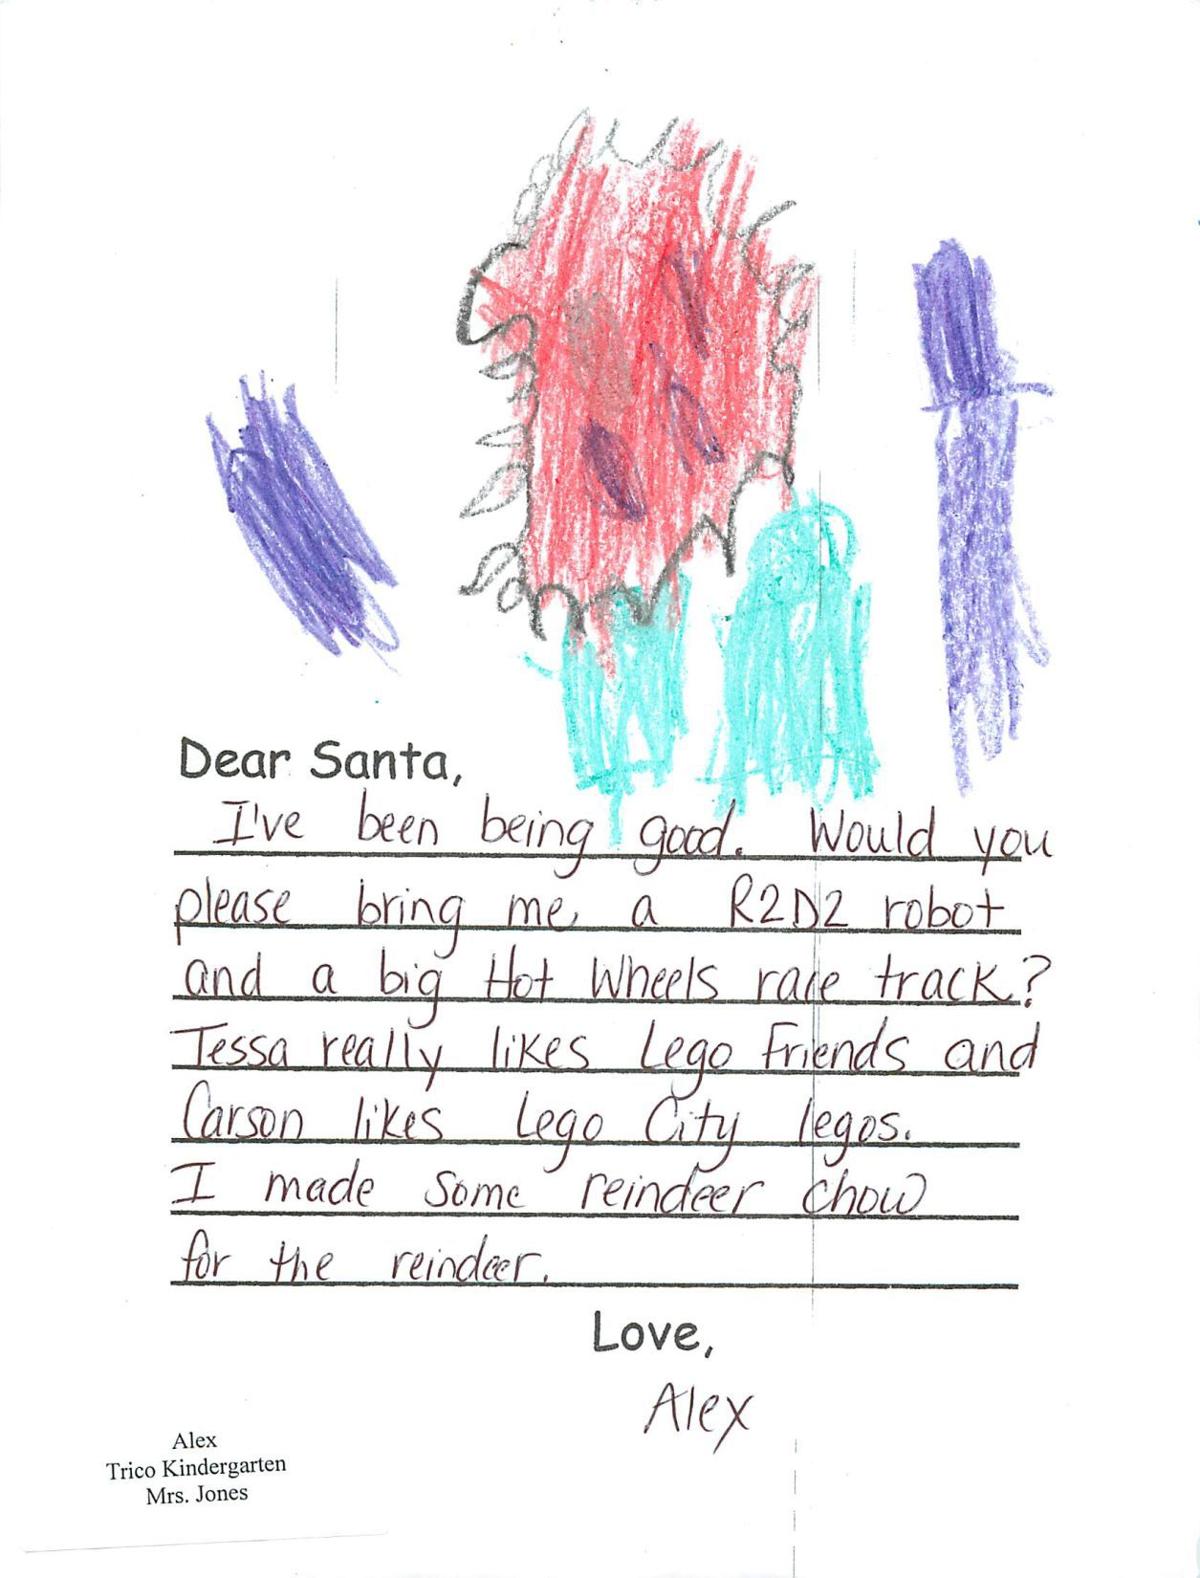 Dear Santa,
I've been being good. Would you
please bring me a R2D2 robot
and a big Hot Wheels race track?
Tessa really likes Lego Friends and
Carson likes Lego City legos.
I made some reindeer chow
for the reindeer.
Love,
Alex
Alex
Trico Kindergarten
Mrs. Jones